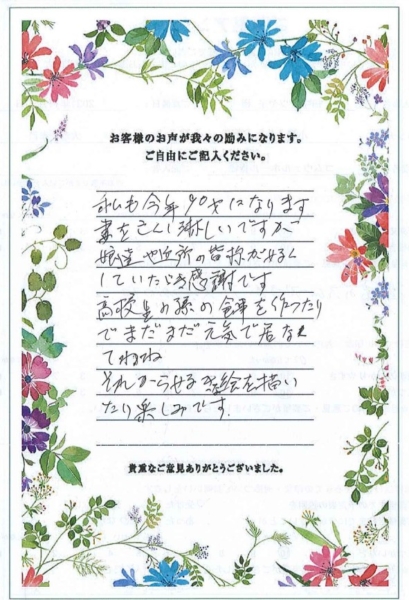 お客様のお声が我々の励みになります。
ご自由にご記入ください。
私も今年90才になります
妻を亡くし淋しいですが
娘達や近所の皆称が好く
していただき感謝です
高校生の孫の食事を作つたり
でまだまだ元気で居なくて
てわね
それから
絵を描い
たり楽しみです.
貴重なご意見ありがとうございました。